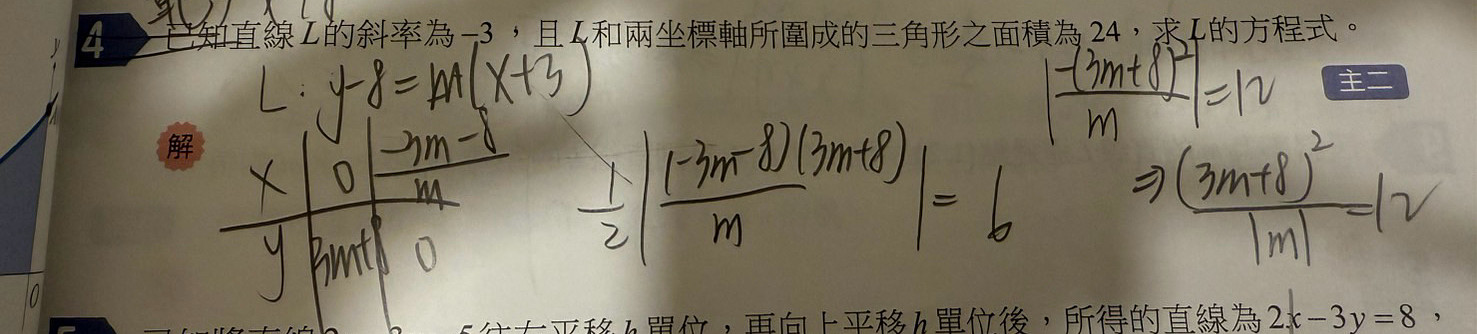 4 已知直線L的斜率為−3，且L和兩坐標軸所圍成的三角形之面積為24，求L的方程式。
主二
L: y-8=m(x+3)
|-(3m+8)²/m|=12
解
x | 0 | -3m-8/m
y | 3m+8 | 0
1/2|(-3m-8)(3m+8)/m|=6
⇒(3m+8)²/|m|=12
往右平移h單位，再向上平移h單位後，所得的直線為2x−3y=8，
0